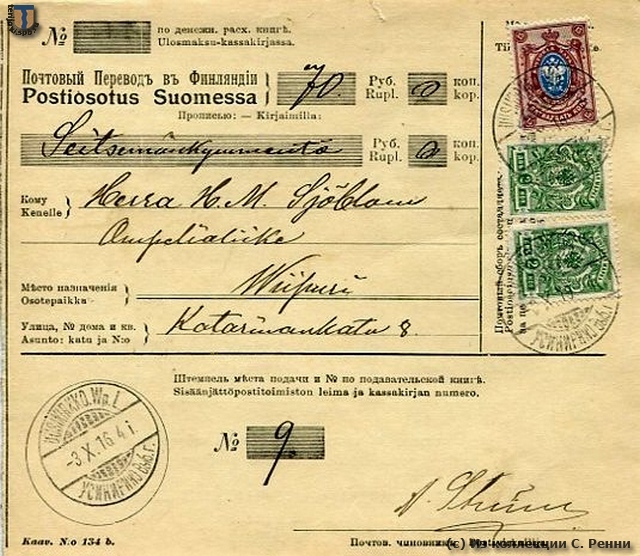 № по денежн. расх. книгѣ.
Ulosmaksu-kassakirjassa.
Почтовый Переводъ въ Финляндіи
Postiosotus Suomessa
70 Руб. Rupl. 0 коп. kop.
Прописью: — Kirjaimilla:
Seitsemänkymmentä Руб. Rupl. 0 коп. kop.
Кому
Kenelle
Herra H. M. Sjöblom
Ompelialiike
Мѣсто назначенія
Osotepaikka
Wiipuri
Улица, № дома и кв.
Asunto: katu ja N:o
Katarinankatu 8.
Штемпель мѣста подачи и № по подавательской книгѣ.
Sisäänjättöpostitoimiston leima ja kassakirjan numero.
UUSIKIRKKO. Wp. l.
-3.X.16. 4 i.
УСИКИРКО Выб. г.
№ 9.
Kaav. N:o 134 b.
Почтов. чиновникъ.
(c) Из коллекции С. Ренни